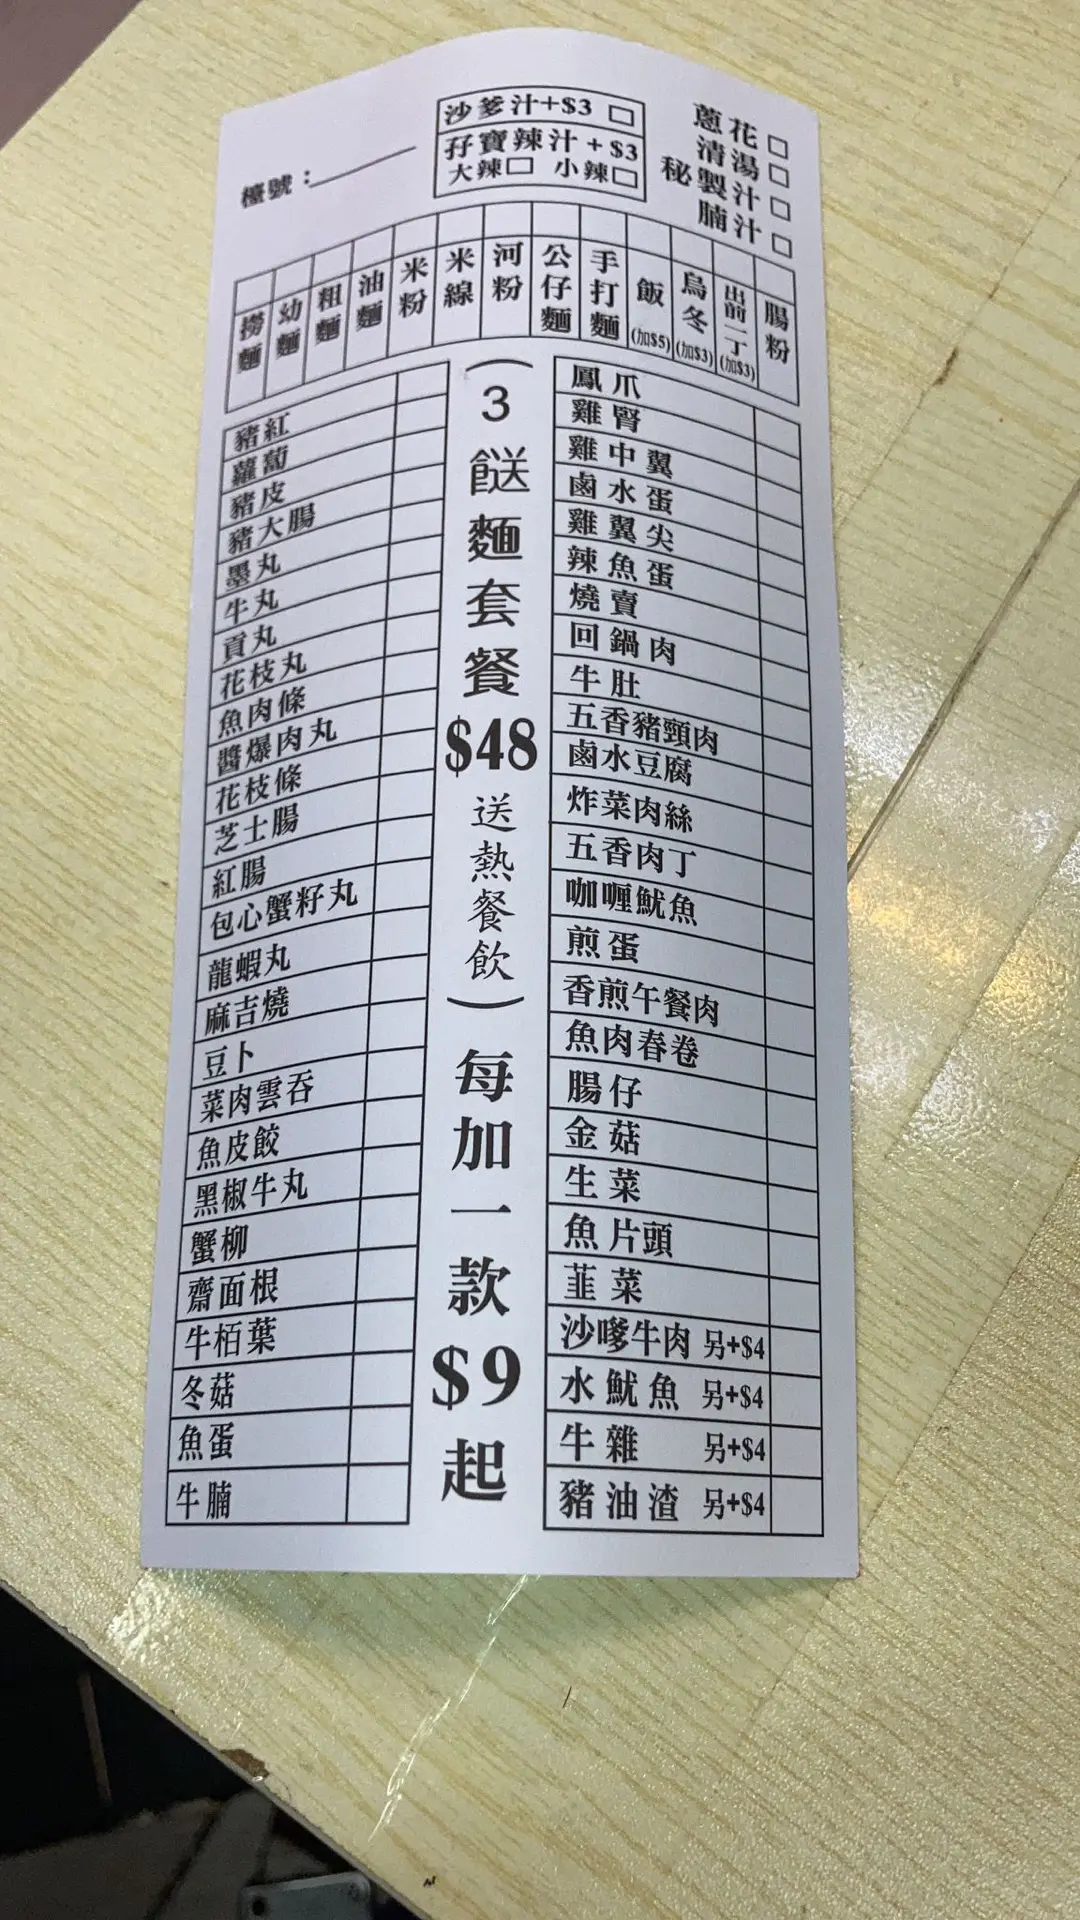 檯號：
沙爹汁+$3
孖寶辣汁+$3
大辣 小辣
蔥花
清湯
秘製汁
腩汁
撈麵
幼麵
粗麵
油麵
米粉
米線
河粉
公仔麵
手打麵
飯(加$5)
烏冬(加$3)
出前一丁(加$3)
腸粉
豬紅
蘿蔔
豬皮
豬大腸
墨丸
牛丸
貢丸
花枝丸
魚肉條
醬爆肉丸
花枝條
芝士腸
紅腸
包心蟹籽丸
龍蝦丸
麻吉燒
豆卜
菜肉雲吞
魚皮餃
黑椒牛丸
蟹柳
齋面根
牛栢葉
冬菇
魚蛋
牛腩
(3餸麵套餐$48送熱餐飲)每加一款$9起
鳳爪
雞腎
雞中翼
鹵水蛋
雞翼尖
辣魚蛋
燒賣
回鍋肉
牛肚
五香豬頸肉
鹵水豆腐
炸菜肉絲
五香肉丁
咖喱魷魚
煎蛋
香煎午餐肉
魚肉春卷
腸仔
金菇
生菜
魚片頭
韮菜
沙嗲牛肉 另+$4
水魷魚 另+$4
牛雜 另+$4
豬油渣 另+$4